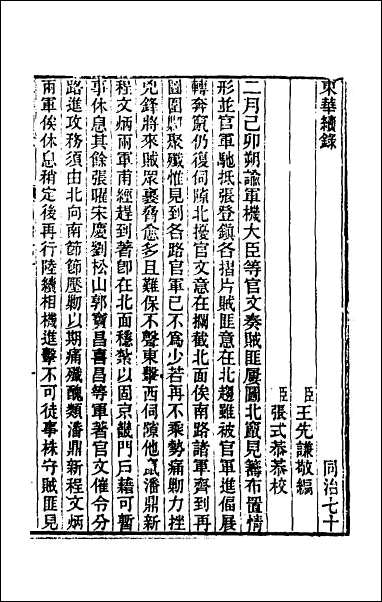 東華續錄
同治七十
臣王先謙敬編
臣張式恭恭校
二月己卯朔諭軍機大臣等官文奏賊匪屢圖北竄見籌布置情
形並官軍馳抵張登鎮各摺片賊匪意在北趨雖被官軍進偪展
轉奔竄仍復伺隙北接官文意在攔截北面俟南路諸軍齊到再
圖圍勦聚殲惟見到各路官軍已不為少若再不乘勢痛勦力挫
兇鋒將來賊眾裹脅愈多且難保不聲東擊西伺隙他竄潘鼎新
程文炳兩軍甫經趕到著卽在北面穩紮以固京畿門戶藉可暫
事休息其餘張曜宋慶劉松山郭寶昌喜昌等軍著官文催令分
路進攻務須由北向南節節壓勦以期痛殲醜類潘鼎新程文炳
兩軍俟休息稍定後再行陸續相機進擊不可徒事株守賊匪見